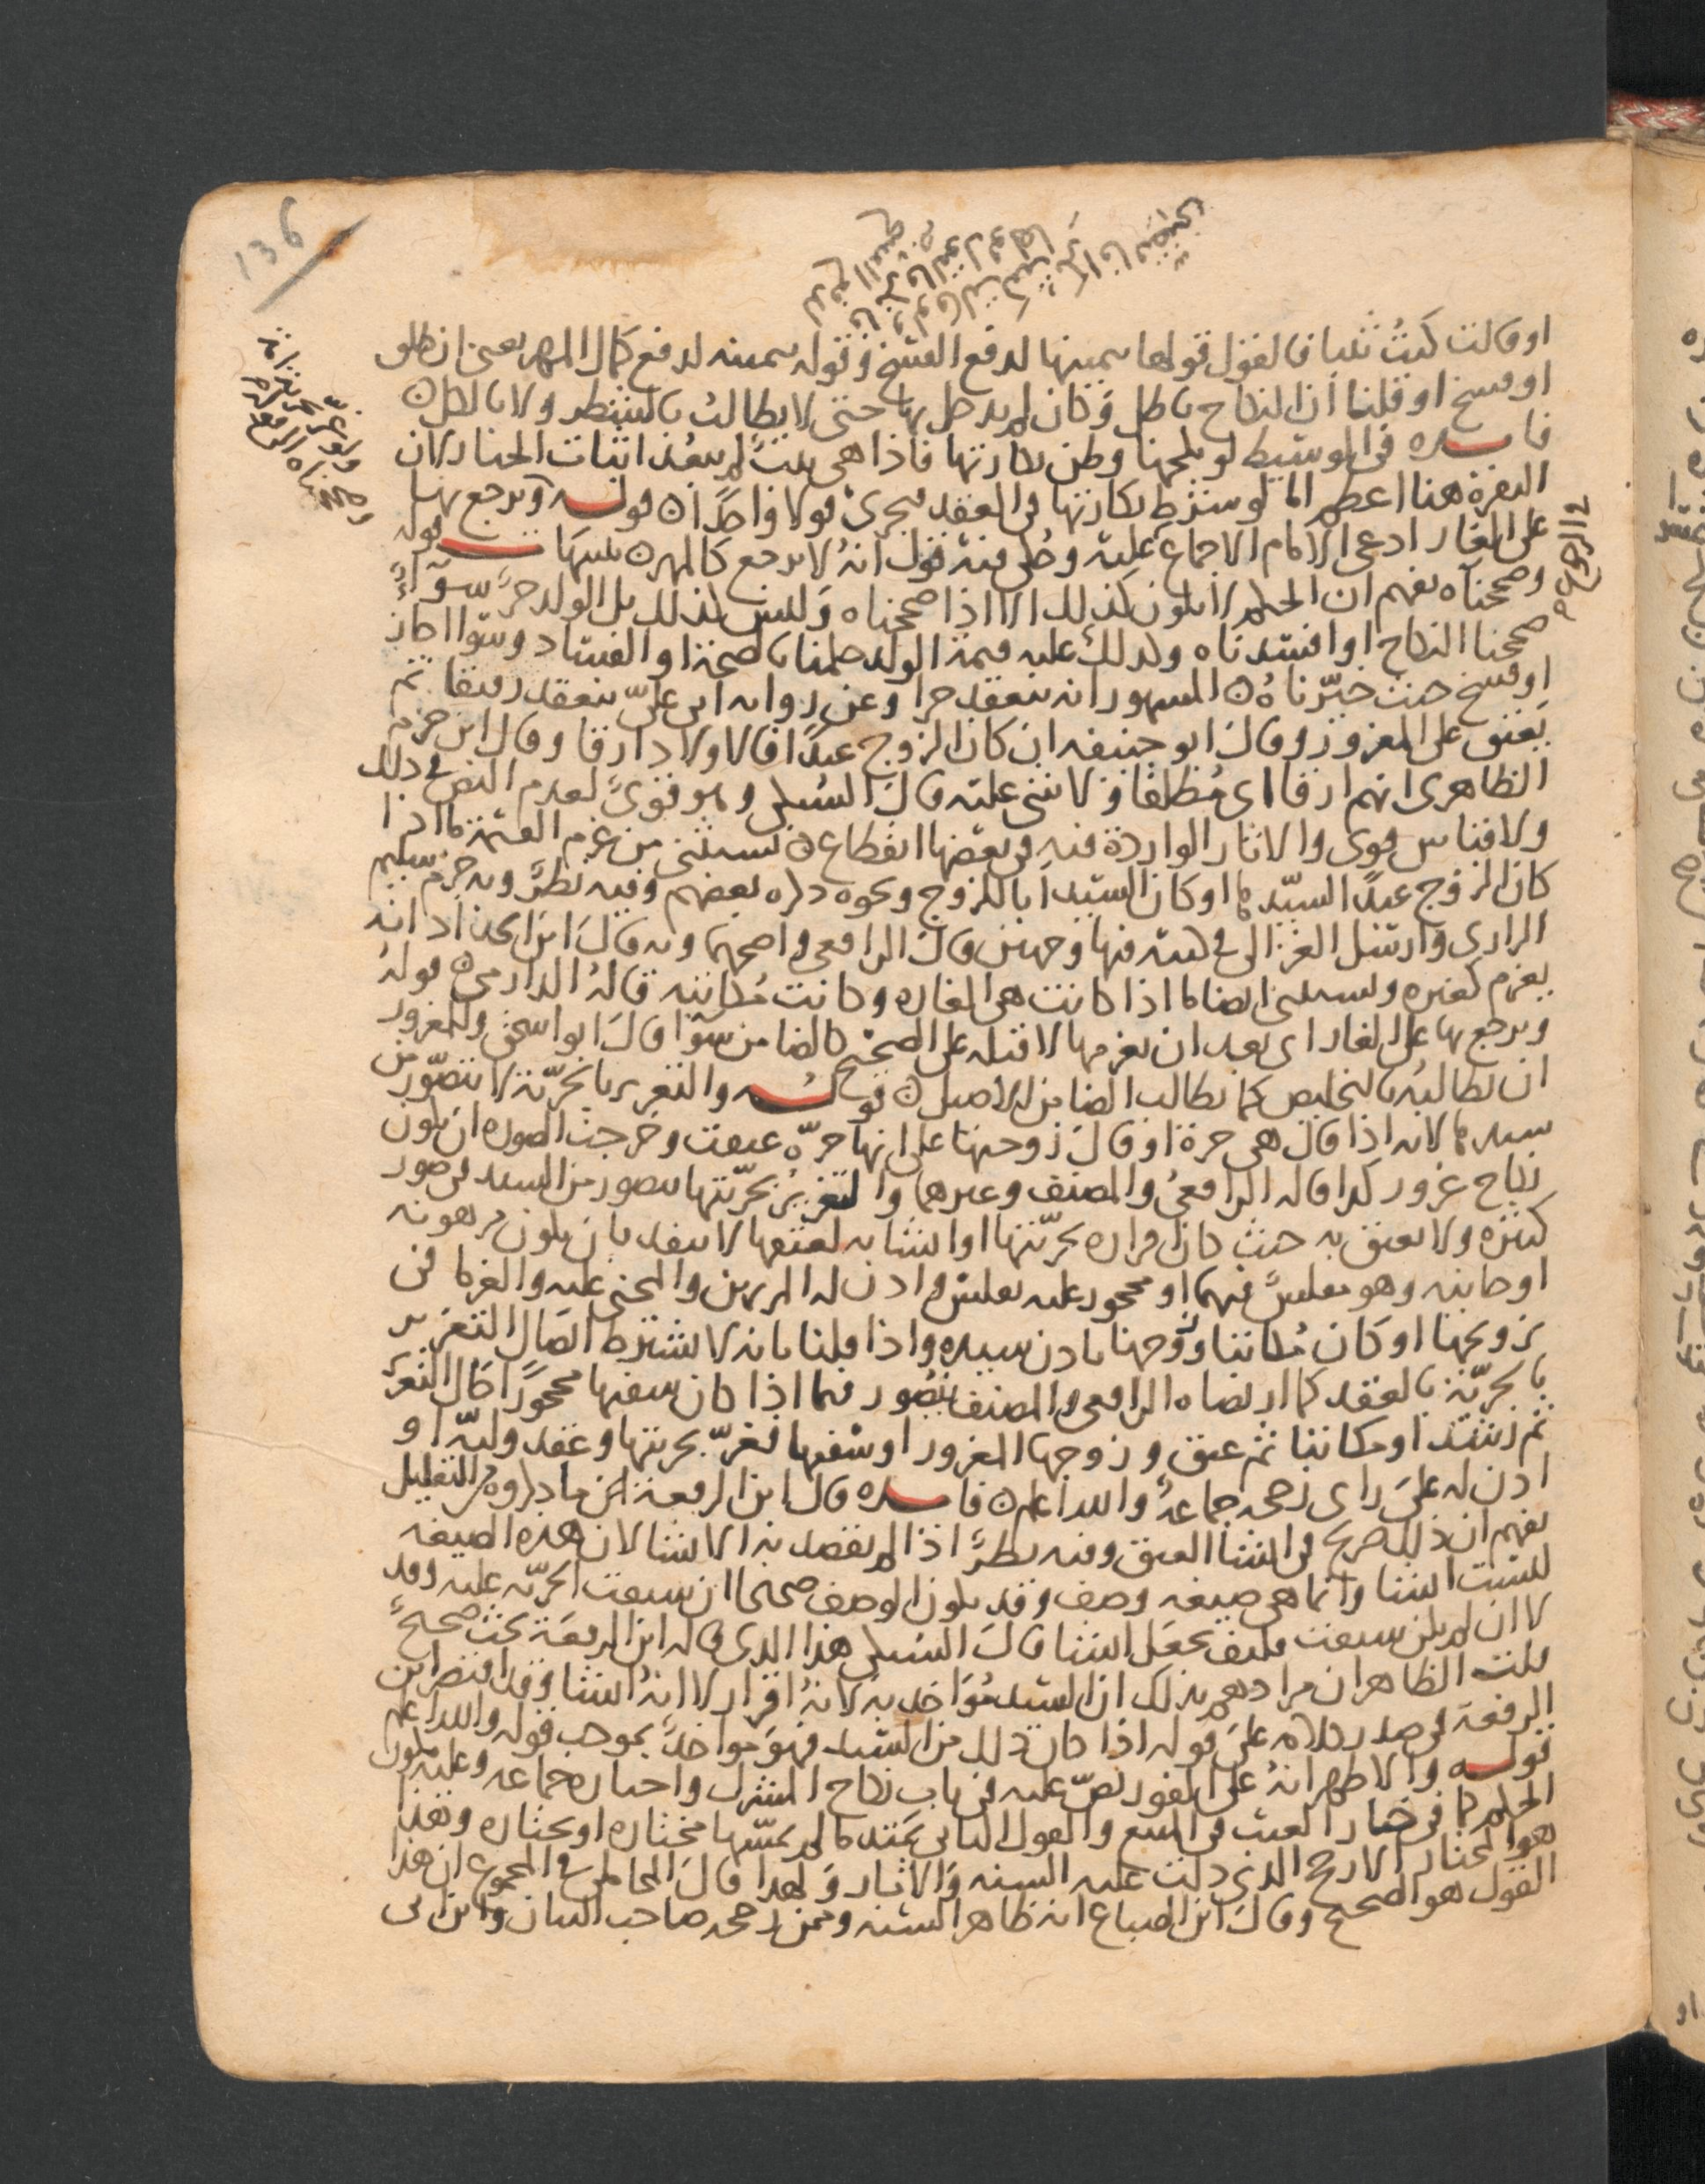 136
او قالت كنتُ ثيبا فالقول قولها بيمينها لدفع الفسخ وقوله بيمينه لدفع كمال المهر يعني ان طلق
او فسخ او قلنا ان النكاح باطل وكان لم يدخل بها حتى لا يطالبُ بالشطر ولا بالكل ن
فايده في الوسيط لو نكحها وظن بكارتها فاذا هي ثيبٌ لم يبعُد اثبات الخيار لان
النفرة هنا اعظم اما لو شرط بكارتها في العقد فيجري قولا واحدًا ن قوله ويرجع بها
على الغار ادعى الامام الاجماع عليه وحُكي فيه قول انهُ لا يرجع كالمهر ن تنبيهان قوله
وصححناه يفهم ان الحكم لا يكون كذلك الا اذا صححناه وليس كذلك بل الولد حرٌّ سوآءٌ
صححنا النكاح او افسدناه وكذلك عليه قيمة الولد حكمنا بالصحة او الفساد وسوا اجاز
او فسخ حيث خيّرناهُ ن المشهور انه ينعقد حرا وعن رواية ابي عليّ ينعقد رقيقا ثم
يَعتق على المغرور وقال ابو حنيفه ان كان الزوج عبدًا فالاولاد ارقا وقال ابن حزم
الظاهري انهم ارقا اي مُطلقًا ولا شي عليه قال السُبكي وهو قويٌّ لعدم النص في ذلك
ولا قياس قوي والاثار الواردة فيه في بعضها انقطاع ن يستثنى من غرم القيمة ما اذا
كان الزوج عبدًا لسيّدها او كان السيد اَبا للزوج ونحوه ذكره بعضهم وفيه نظرٌ وبه جزم سليم
الرازي وارسل الغزالي في كتبه فيها وجهين قال الرافعي واصحهما وبه قال ابن الحداد انه
يغرم كغيره ويستثنى ايضا ما اذا كانت هي الغاره وكانت مُكاتبه قالهُ الدارمي ن قولهُ
ويرجع بها على الغار اي بعد ان يغرمها لا قبله على الصحيح كالضامن سوا قال ابو اسحق وللمغرور
ان يطالبهُ بالتخليص كما يطالب الضامن الاصيل ن قولُه والتغرير بالحريّة لا يتصوّر من
سيدها لانه اذا قال هي حرة او قال زوجتها على انها حرّه عتقت وخرجت الصوره ان يكون
نكاح غرور كذا قاله الرافعيُ والمصنف وغيرهما والتغريرُ بحريّتها يتصور من السيد في صور
كثيره ولا يعتق به حيث كان اقراره بحريّتها او انشا به لعتقها لا ينفذ بان يكون مرهونه
او جانيه وهو مفلسٌ فيهما او محجور عليه بفلس واذن له المرتهن والمجني عليه والغرما في
تزويجها او كان مُكاتبا وزوّجها باذن سيده واذا قلنا بانه لا يشترط اتصال التغرير
بالحريّة بالعقد كما ارتضاه الرافعي والمصنف تصور فيما اذا كان سفيها محجورًا حال التغرير
ثم رشد او مكاتبا ثم عتق وزوجها المغرور او سفيها فغرّ بحريتها وعقد وليّه او
اذن له على راي رجحه جماعةٌ والله اعلم ن فايده قال ابن الرفعة لكن ما ذكروه من التعليل
يفهم ان ذلك صريح في انشا العتق وفيه نظرٌ اذا لم يقصد به الانشا لان هذه الصيغه
ليست انشا وانما هي صيغه وصف وقد يكون الوصف صحيحا ان سبقت الحريّه عليه وقد
لا ان لم يكن سبقت فكيف يجعل انشا قال السُبكي هذا الذي قاله ابن الرفعة بحث صحيحٌ
قلت الظاهر ان مرادهم بذلك ان السيد مُوَاخذ به لانهُ اقرار لا انهُ انشا وقد اقتصر ابن
الرفعة في صدر كلامه على قوله اذا كان ذلك من السيد فهوَ مواخذٌ بموجب قوله والله اعلم
قوله والاظهر انهُ على الفور نصّ عليه في باب نكاح المشرك واختاره جماعه وعليه يكون
الحكم كما في خيار العيب في البيع والقول الثاني يمتد ما لم يمسّها مختاره او بختاره وهذا
هو المختار الارجح الذي دلت عليه السنه والاثار ولهذا قال المحاملي في المجموع ان هذا
القول هو الصحيح وقال ابن الصباغ انه ظاهر السنه وممن رجحه صاحب البيان وابن ابي
ولو غرّ بحرية امة
وصححناه
في الرجوع